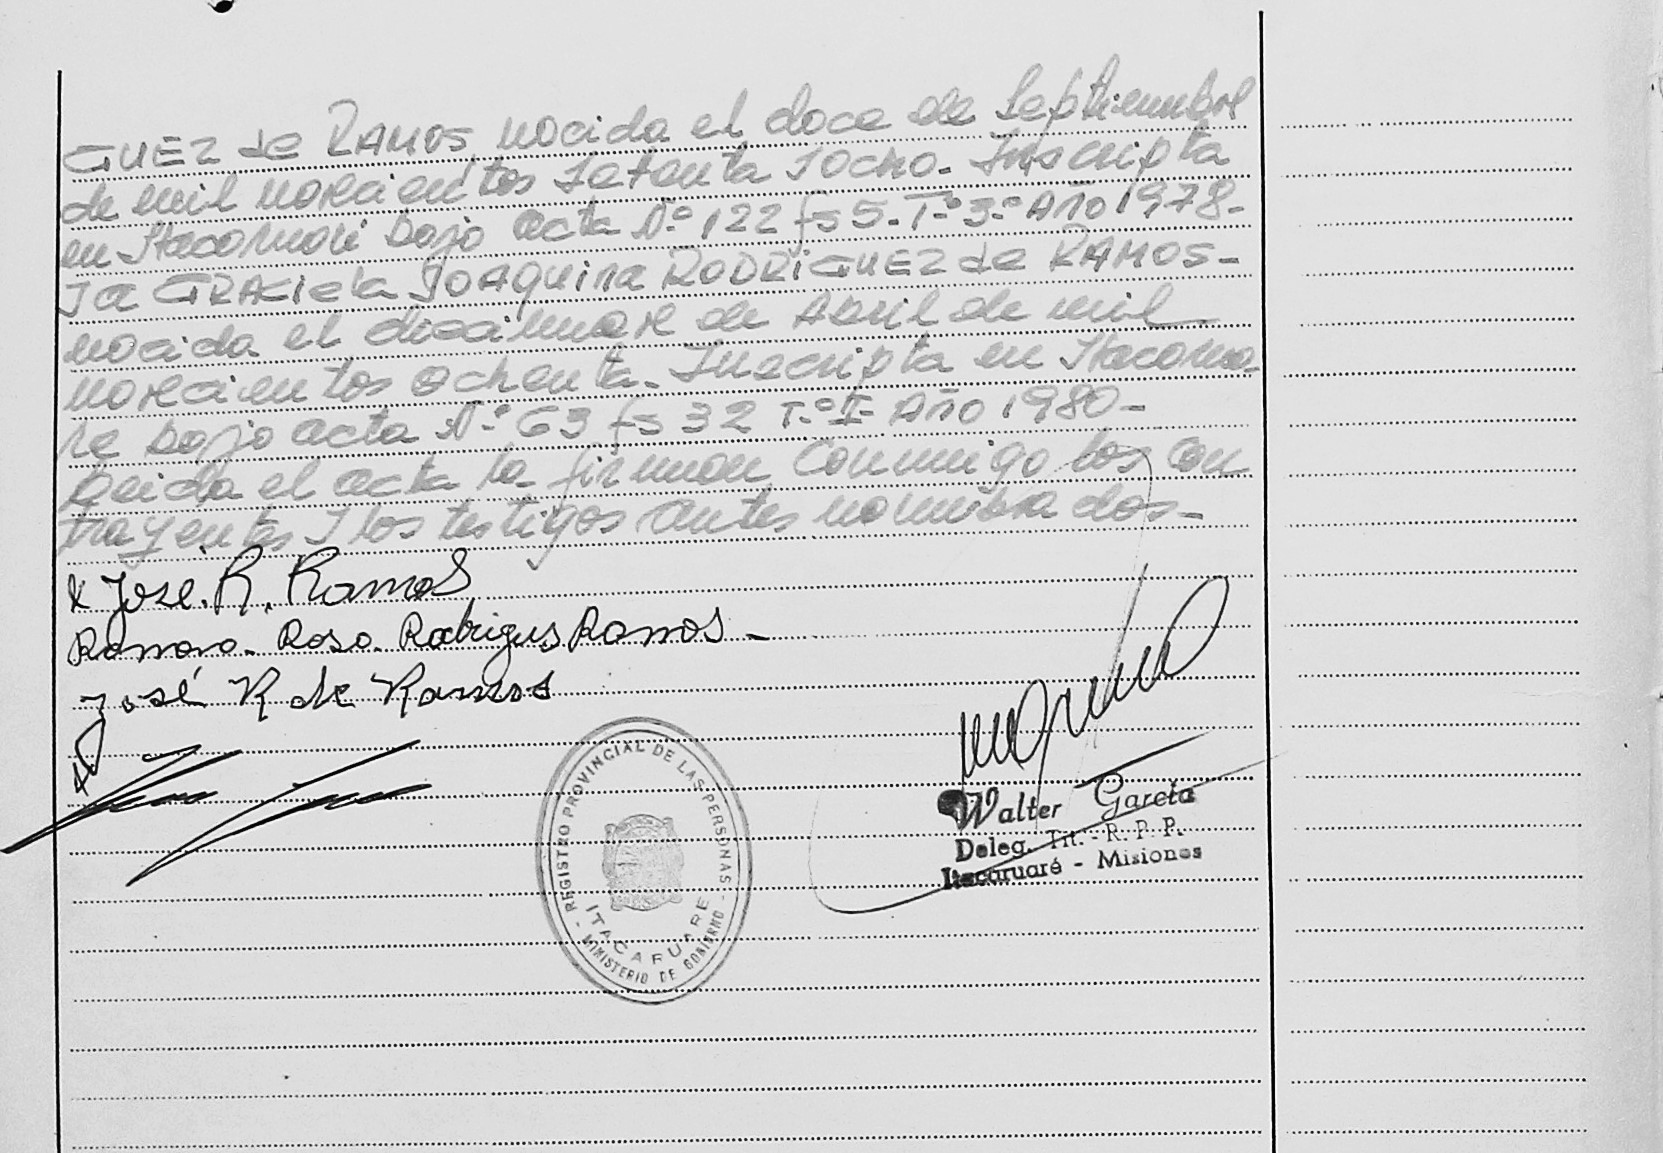 GUEZ de RAMOS, nacida el doce de Septiembre
de mil novecientos setenta y ocho. Inscripta
en Itacaruaré bajo acta N.º 122 fs 5. T.º 3.º Año 1978.
y a GRACIELA JOAQUINA RODRIGUEZ de RAMOS -
nacida el diecinueve de Abril de mil
novecientos ochenta. Inscripta en Itacarua-
re bajo acta N.º 63 fs 32 T.º I - Año 1980 -
Leida el acta la firman conmigo los con
trayentes y los testigos antes nombrados -
x José. R. Ramos
Ramona. Rosa. Rodrigues Ramos -
José R de Ramos
REGISTRO PROVINCIAL DE LAS PERSONAS
ITACARUARE
MINISTERIO DE GOBIERNO
Walter García
Deleg. Tit. - R. P. P.
Itacaruaré - Misiones